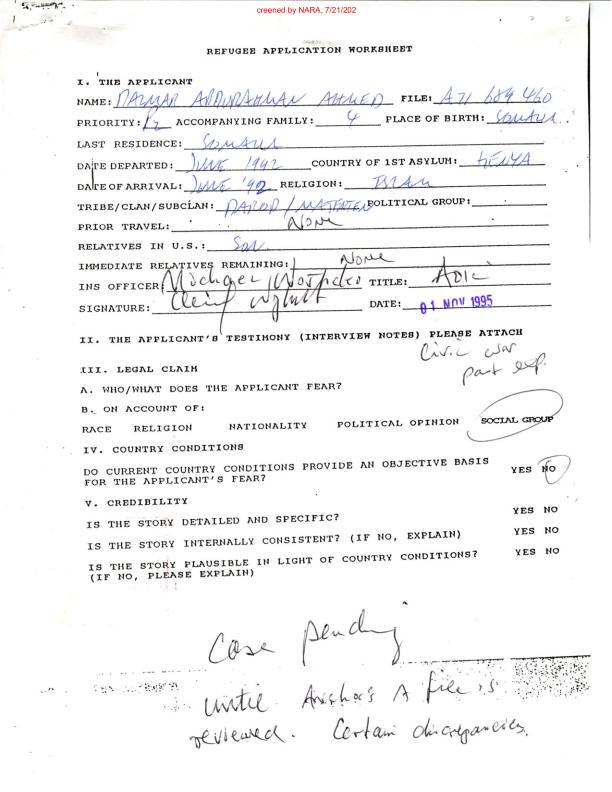 creened by NARA, 7/21/202
REFUGEE APPLICATION WORKSHEET
I. THE APPLICANT
NAME: ABDURAHMAN AHMED FILE: A71 689 460
PRIORITY: P2 ACCOMPANYING FAMILY: 4 PLACE OF BIRTH: SOMALIA
LAST RESIDENCE: SOMALIA
DATE DEPARTED: JUNE 1992 COUNTRY OF 1ST ASYLUM: KENYA
DATE OF ARRIVAL: JUNE '92 RELIGION: ISLAM
TRIBE/CLAN/SUBCLAN: DAROD / POLITICAL GROUP:
PRIOR TRAVEL: None
RELATIVES IN U.S.: Son
IMMEDIATE RELATIVES REMAINING: None
INS OFFICER: Michael TITLE:
SIGNATURE: DATE: 01 NOV 1995
II. THE APPLICANT'S TESTIMONY (INTERVIEW NOTES) PLEASE ATTACH
Civil war
past exp.
III. LEGAL CLAIM
A. WHO/WHAT DOES THE APPLICANT FEAR?
B. ON ACCOUNT OF:
RACE RELIGION NATIONALITY POLITICAL OPINION SOCIAL GROUP
IV. COUNTRY CONDITIONS
DO CURRENT COUNTRY CONDITIONS PROVIDE AN OBJECTIVE BASIS YES NO
FOR THE APPLICANT'S FEAR?
V. CREDIBILITY
IS THE STORY DETAILED AND SPECIFIC? YES NO
IS THE STORY INTERNALLY CONSISTENT? (IF NO, EXPLAIN) YES NO
IS THE STORY PLAUSIBLE IN LIGHT OF COUNTRY CONDITIONS? YES NO
(IF NO, PLEASE EXPLAIN)
Case pending
until A file is
reviewed. Certain discrepancies.